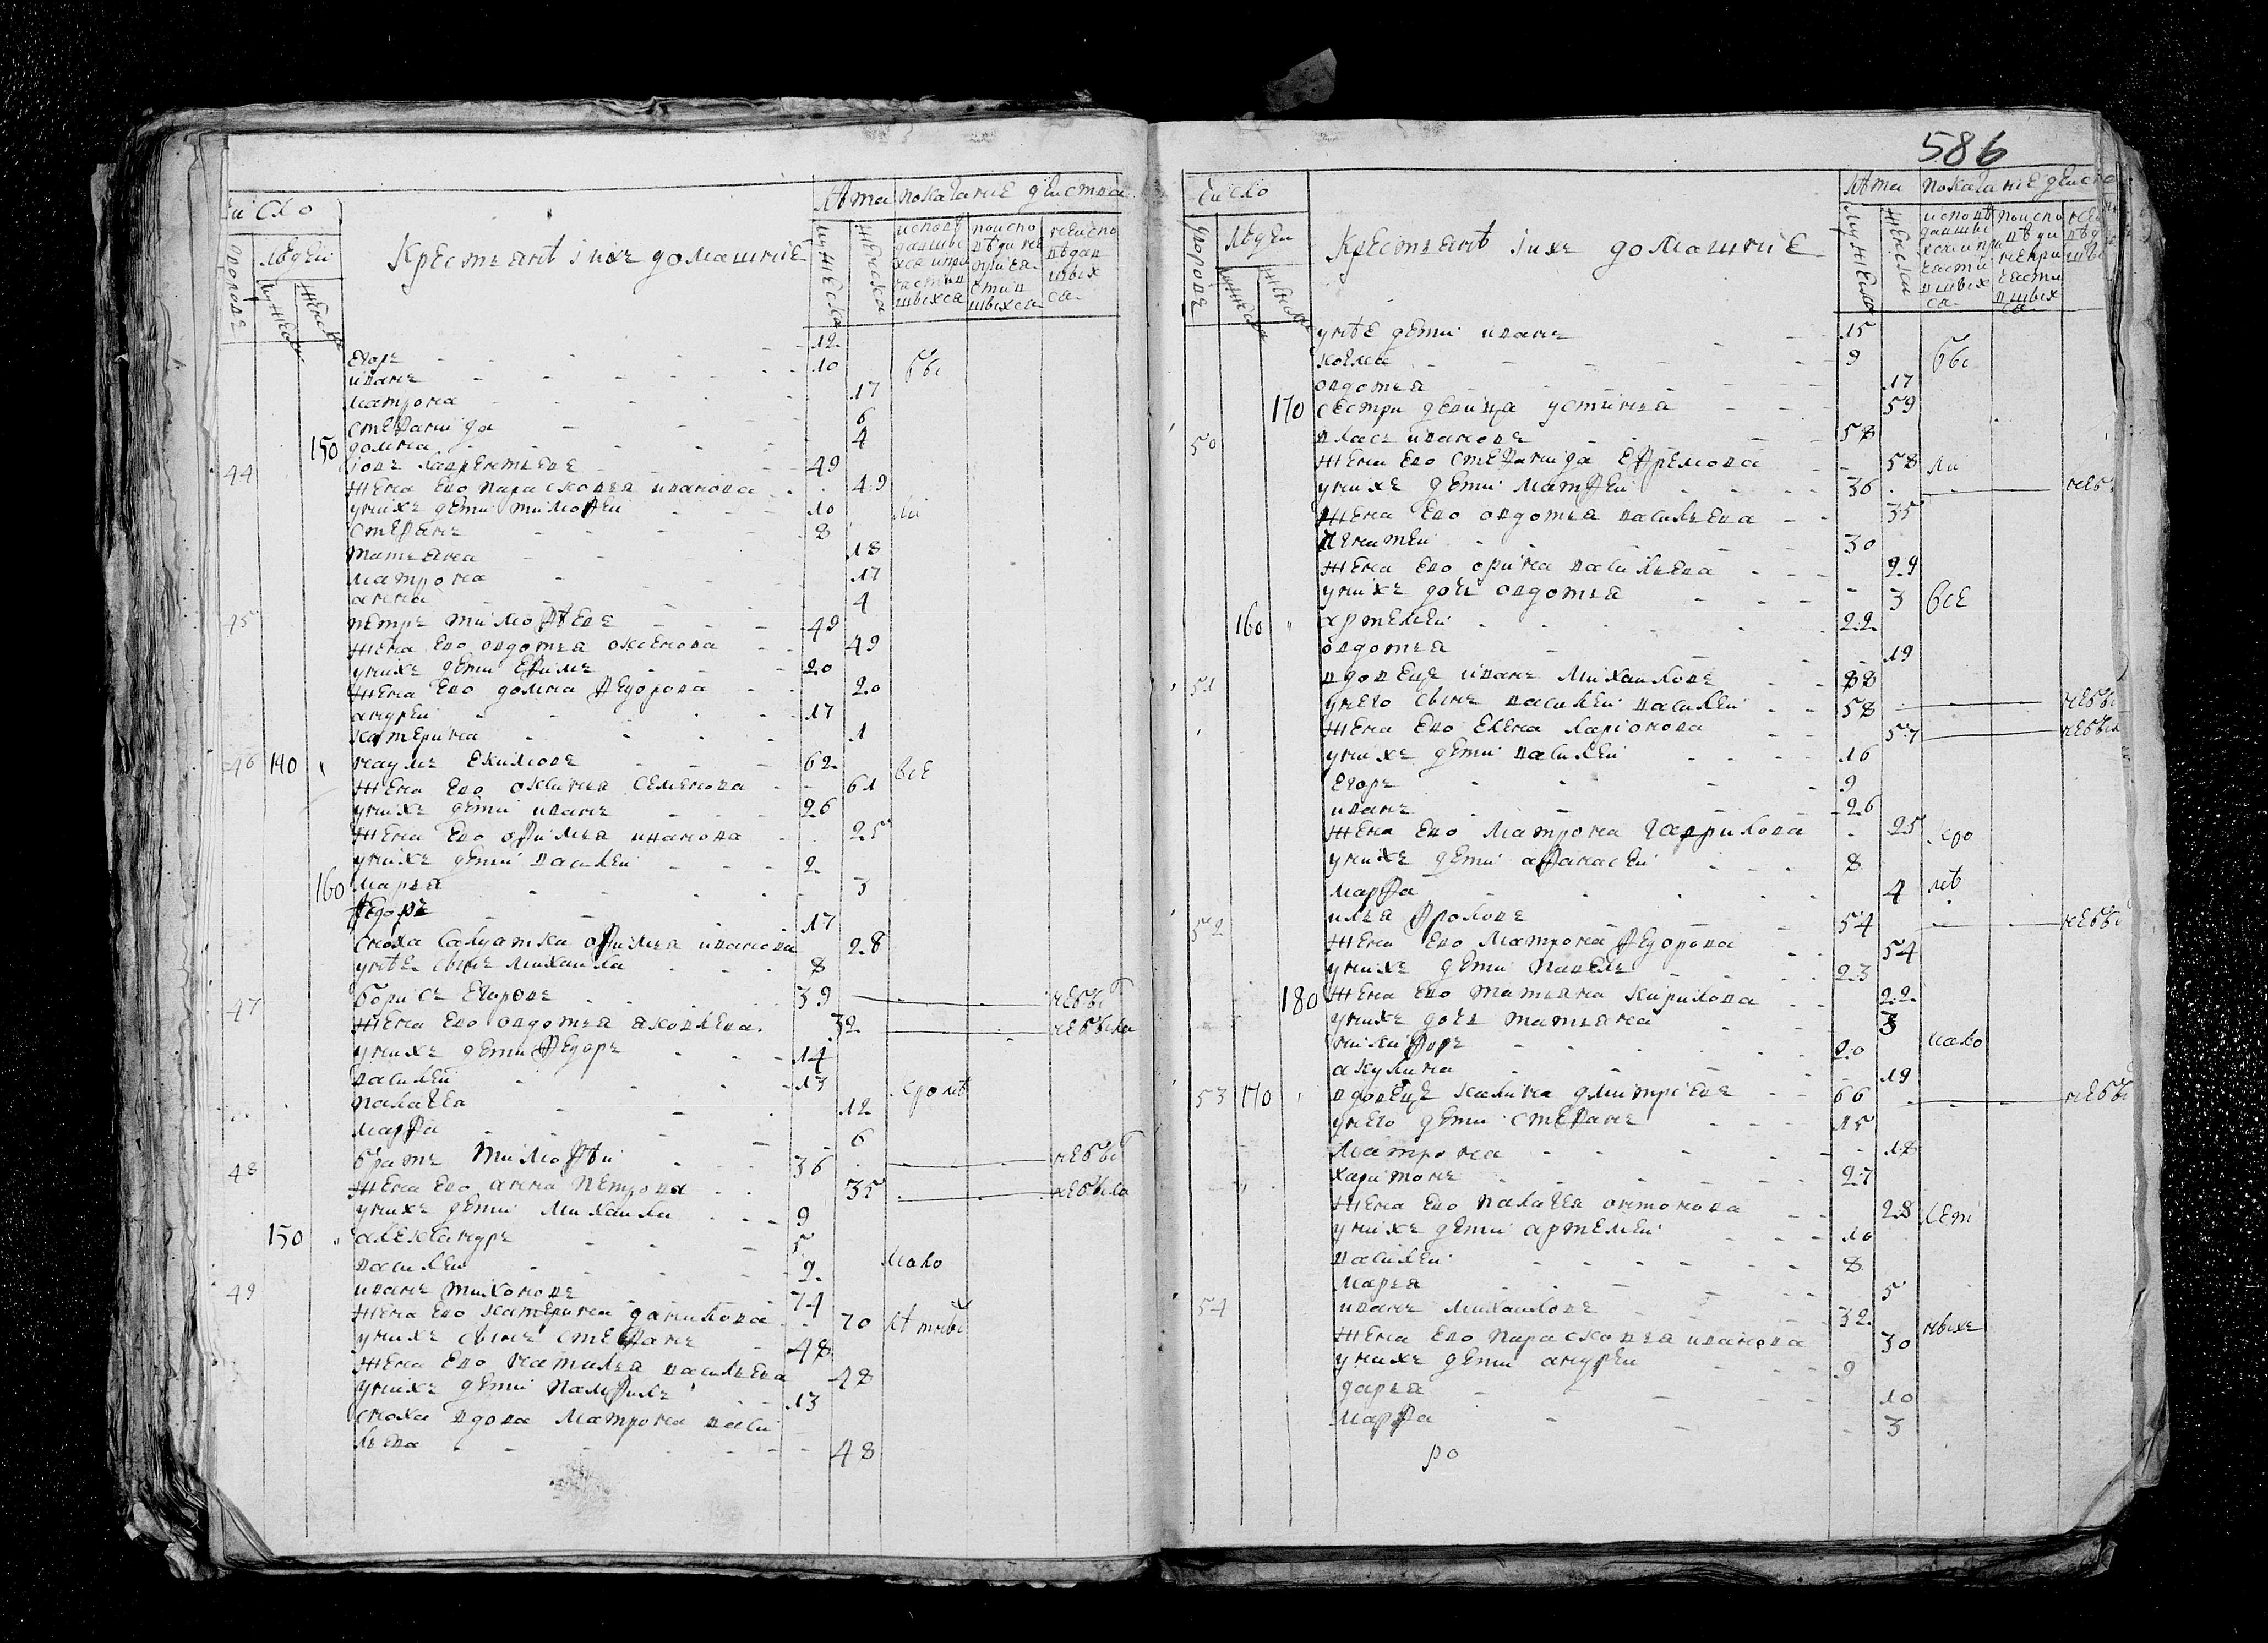 586
число
лѣта показание действа
дворовъ
людей
мужеска
женска
Крестьянѣ iихъ домашние
мужеска
женска
исповѣдавшихся ипричастившихся
поисповѣдися непричастившихся
неисповѣдавшихся
Егоръ 12
иванъ 10 бы
матрона 17
стефанида 6
150 домна 4
44 iовъ лаврентьевъ 49
жена ево парасковья иванова 49
унихъ дети тимофеи 10 ли
стефанъ 8
татьяна 18
матрона 17
анна 4
45 петръ тимофѣевъ 49
жена ево овдотья оксенова 49
унихъ дети ефимъ 20
жена ево домна федорова 20
андреи 17
катерина 1
46 140 наумъ екимовъ 62 все
жена ево оксинья семенова 61
унихъ дети иванъ 26
жена ево офимья иванова 25
унихъ дети василеи 2
160 марья 3
федоръ 17
сноха салдатка офимья иванова 28
унѣе сынъ михаила 8
47 борисъ Егоровъ 39 небы
жена ево овдотья яковлева 32 небыла
унихъ дети федоръ 14
василеи 13 кромѣ
палагея 12
марфа 6
48 братъ тимофѣи 36 небы
жена ево анна петрова 35 небыла
унихъ дети михаила 9
150 александръ 5
василеи 2 мало
49 иванъ тихоновъ 74
жена ево катерина данилова 70 лѣтны
унихъ сынъ стефанъ 48
жена ево наталья васильева 48
унихъ дети памфилъ 13
сноха вдова матрона васи
льева 48
число
лѣта показание действ
дворовъ
людей
мужеска
женска
Крестьянѣ iихъ домашние
унѣе дети иванъ 15
козма 9 бы
овдотья 17
170 сестра девица устинья 59
50 власъ ивановъ 58
жена ево стефанида ефремова 58 ли
унихъ дети матфеи 36 небы
жена ево овдотья васильева 35
игнатеи 30
жена ево орина васильева 29
унихъ дочь овдотья 3 все
160 артемеи 22
овдотья 19
51 вдовецъ иванъ михаиловъ 88
унего сынъ василеи василеи 58 небы
жена ево елена ларiонова 57 небыла
унихъ дети василеи 16
Егоръ 9
иванъ 26
жена ево матрона гаврилова 25 кро
унихъ дети афанасеи 8
марфа 4 мѣ
52 илья фроловъ 54 небы
жена ево матрона федорова 54
унихъ дети павелъ 23
180 жена ево татьяна кирилова 22
унихъ дочь татьяна 3
никифоръ 20 мало
акулина 19
53 170 вдовецъ калина дмитрiевъ 66 небы
унего дети стефанъ 15
матрона 18
харитонъ 27
жена ево палагея онтонова 28 лет
унихъ дети артемеи 10
василеи 8
марья 5
54 иванъ михаиловъ 32
жена ево парасковья иванова 30 ныхъ
унихъ дети андреи 9
дарья 10
марфа 3
ро